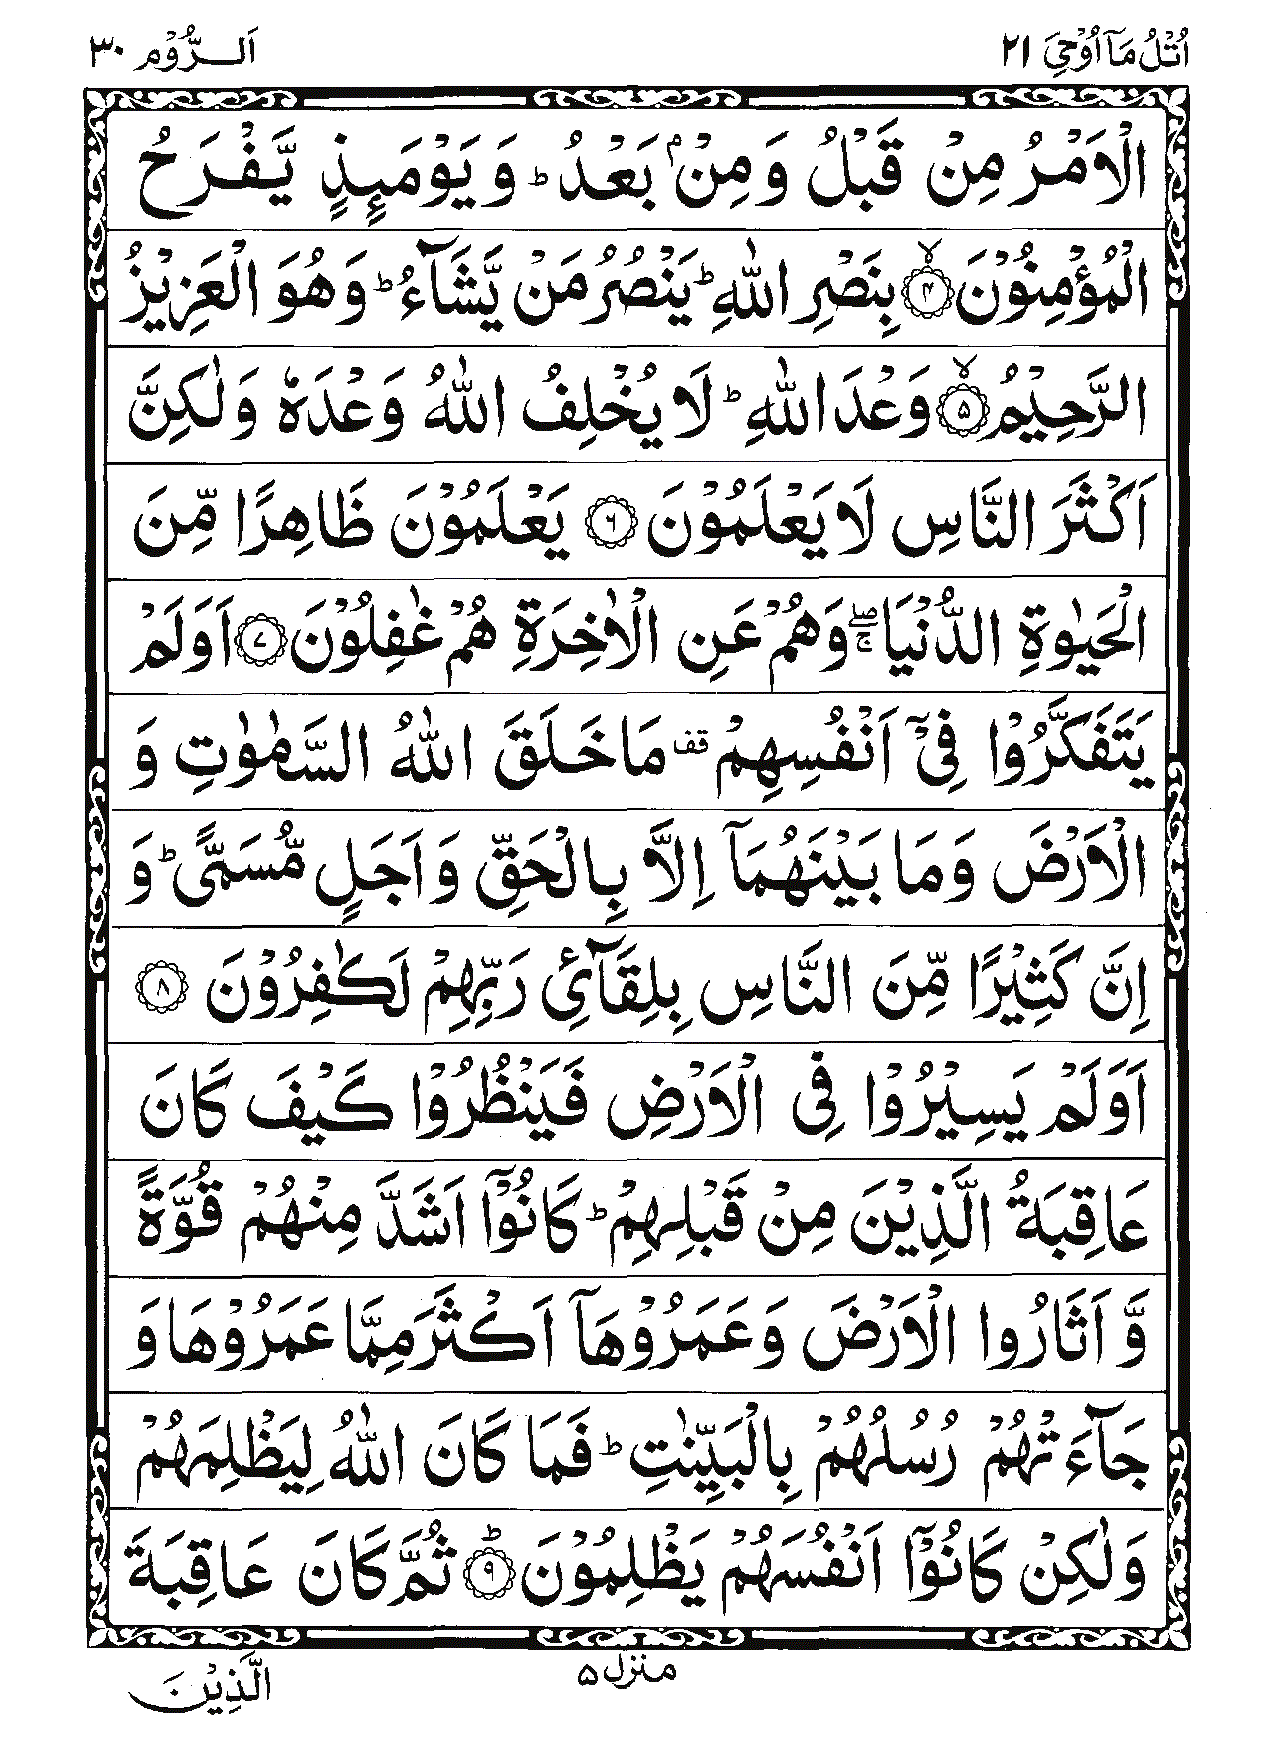 اُتْلُ مَآ اُوْحِيَ ٢١
اَلرُّوْم ٣٠
الْاَمْرُ مِنْ قَبْلُ وَ مِنْۢ بَعْدُ ؕ وَ يَوْمَىِٕذٍ يَّفْرَحُ
الْمُؤْمِنُوْنَ ۙ۴ بِنَصْرِ اللّٰهِ ؕ يَنْصُرُ مَنْ يَّشَآءُ ؕ وَ هُوَ الْعَزِيْزُ
الرَّحِيْمُ ۙ۵ وَعْدَ اللّٰهِ ؕ لَا يُخْلِفُ اللّٰهُ وَعْدَهٗ وَ لٰكِنَّ
اَكْثَرَ النَّاسِ لَا يَعْلَمُوْنَ ۶ يَعْلَمُوْنَ ظَاهِرًا مِّنَ
الْحَيٰوةِ الدُّنْيَا ۖۚ وَ هُمْ عَنِ الْاٰخِرَةِ هُمْ غٰفِلُوْنَ ۷ اَوَ لَمْ
يَتَفَكَّرُوْا فِيْۤ اَنْفُسِهِمْ قف مَا خَلَقَ اللّٰهُ السَّمٰوٰتِ وَ
الْاَرْضَ وَ مَا بَيْنَهُمَاۤ اِلَّا بِالْحَقِّ وَ اَجَلٍ مُّسَمًّى ؕ وَ
اِنَّ كَثِيْرًا مِّنَ النَّاسِ بِلِقَآئِ رَبِّهِمْ لَكٰفِرُوْنَ ۸
اَوَ لَمْ يَسِيْرُوْا فِى الْاَرْضِ فَيَنْظُرُوْا كَيْفَ كَانَ
عَاقِبَةُ الَّذِيْنَ مِنْ قَبْلِهِمْ ؕ كَانُوْۤا اَشَدَّ مِنْهُمْ قُوَّةً
وَّ اَثَارُوا الْاَرْضَ وَ عَمَرُوْهَاۤ اَكْثَرَ مِمَّا عَمَرُوْهَا وَ
جَآءَتْهُمْ رُسُلُهُمْ بِالْبَيِّنٰتِ ؕ فَمَا كَانَ اللّٰهُ لِيَظْلِمَهُمْ
وَ لٰكِنْ كَانُوْۤا اَنْفُسَهُمْ يَظْلِمُوْنَ ؕ۹ ثُمَّ كَانَ عَاقِبَةَ
منزل ۵
الَّذِيْنَ